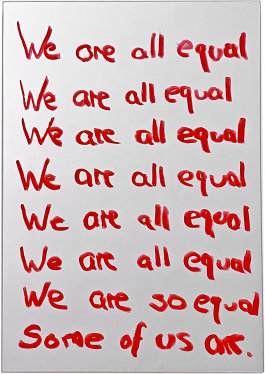 We are all equal
We are all equal
We are all equal
We are all equal
We are all equal
We are all equal
We are so equal
Some of us are.